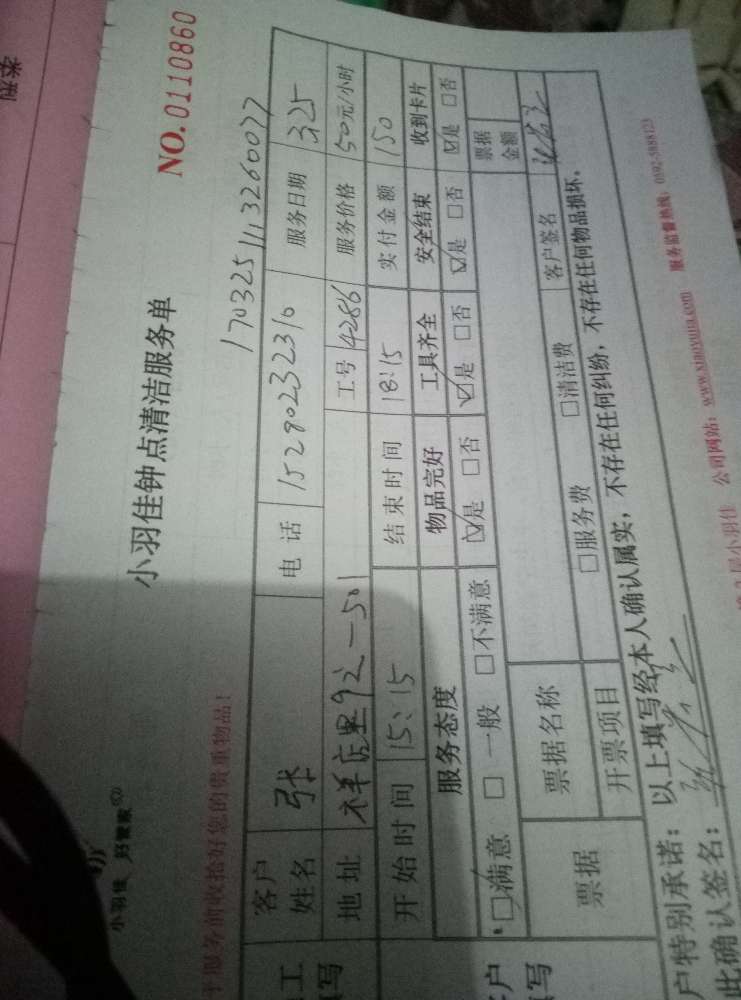 小羽佳 好管家
小羽佳钟点清洁服务单
NO.0110860
于服务前收拾好您的贵重物品！
170325111326007
客户姓名 张 电话 15280232310 服务日期 3.25
地址 祥店里92-501 工号 4286 服务价格 50元/小时
开始时间 15:15 结束时间 18:15 实付金额 150
服务态度 物品完好 工具齐全 安全结束 收到卡片
☑满意 □一般 □不满意 ☑是 □否 ☑是 □否 ☑是 □否 ☑是 □否
票据 票据名称 票据金额
开票项目 □服务费 □清洁费 客户签名
户特别承诺：以上填写经本人确认属实，不存在任何纠纷，不存在任何物品损坏。
此确认签名：
公司网站：www.xiaoyujia.com 服务监督热线：0592-5888123